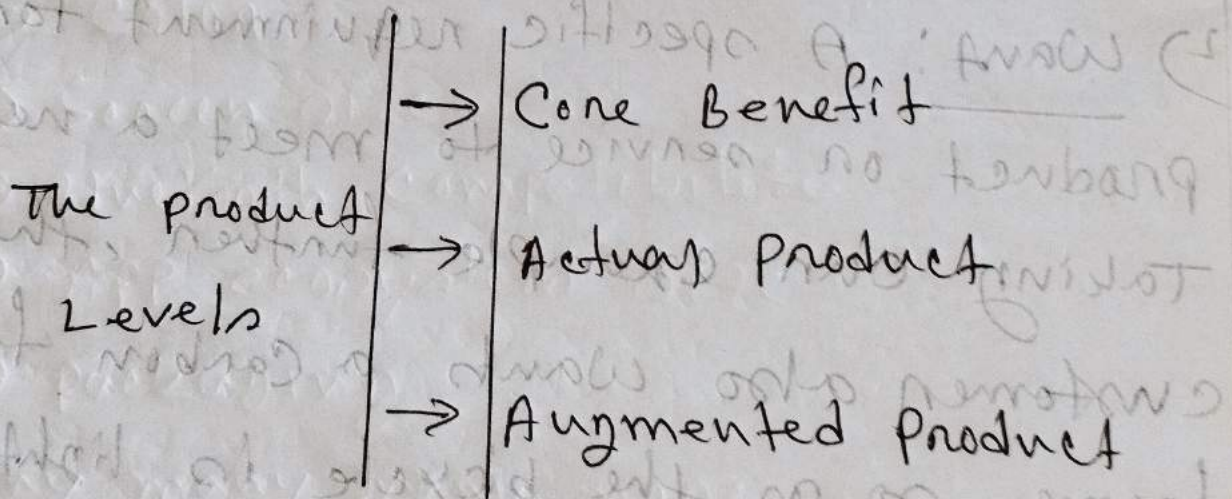 The product
Levels
→ Core Benefit
→ Actual Product
→ Augmented Product